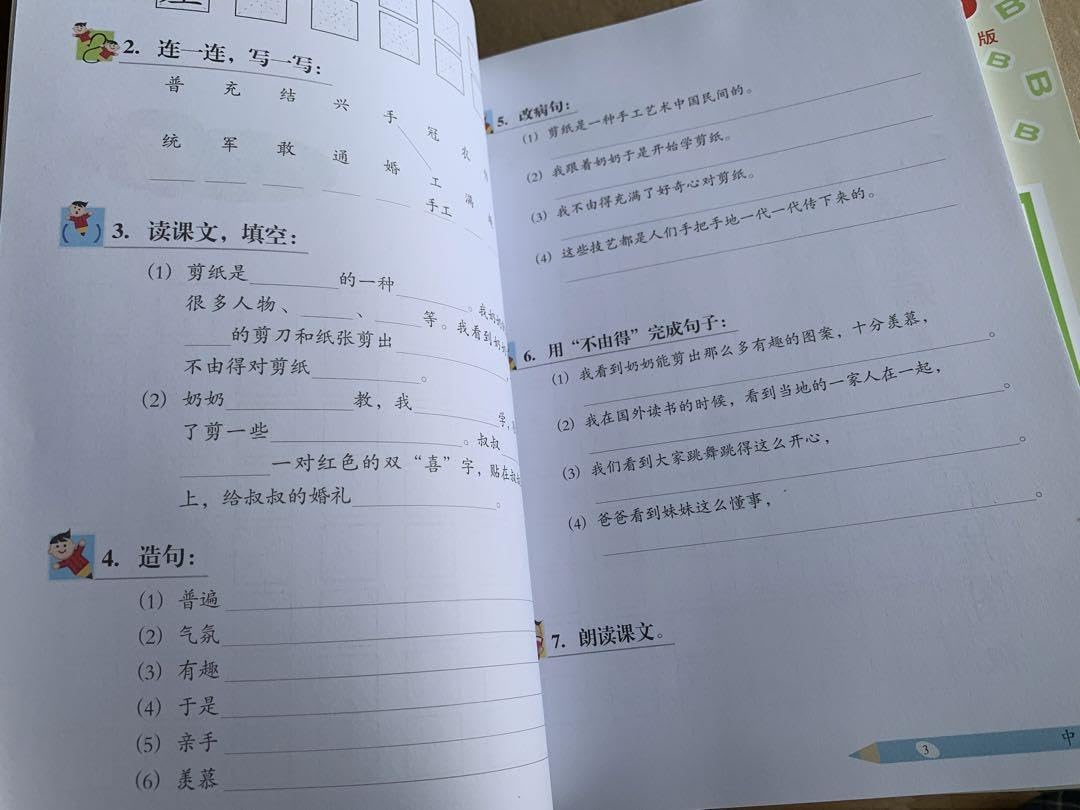 2. 连一连，写一写：
普 充 结 兴 手 冠
统 军 敢 通 婚 工 满
手工
3. 读课文，填空：
(1) 剪纸是________的一种________。我奶奶
很多人物、____、____等。我看到奶奶
____的剪刀和纸张剪出________
不由得对剪纸________。
(2) 奶奶________教，我________学，
了剪一些________。叔叔
________一对红色的双“喜”字，贴在叔叔
上，给叔叔的婚礼________。
4. 造句：
(1) 普遍
(2) 气氛
(3) 有趣
(4) 于是
(5) 亲手
(6) 羡慕
5. 改病句：
(1) 剪纸是一种手工艺术中国民间的。
(2) 我跟着奶奶于是开始学剪纸。
(3) 我不由得充满了好奇心对剪纸。
(4) 这些技艺都是人们手把手地一代一代传下来的。
6. 用“不由得”完成句子：
(1) 我看到奶奶能剪出那么多有趣的图案，十分羡慕，
________。
(2) 我在国外读书的时候，看到当地的一家人在一起，
________。
(3) 我们看到大家跳舞跳得这么开心，
________。
(4) 爸爸看到妹妹这么懂事，
________。
7. 朗读课文。
3
中
版
B
B
B
B